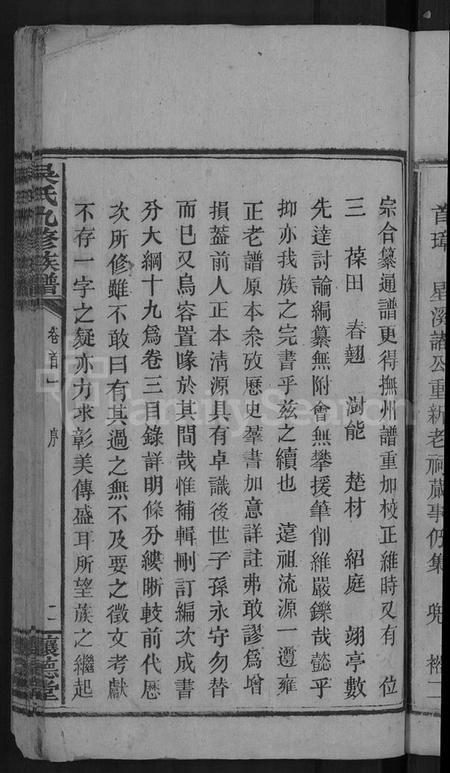 首璋 星溪諸公重新老祠蕆事仍集
宗合纂通譜更得撫州譜重加校正維時又有 位
三 葆田 春翹 澍能 楚材 紹庭 翊亭數
先達討論編纂無附會無攀援筆削維嚴鑠哉懿乎
抑亦我族之完書乎茲之續也 遠祖流源一遵雍
正老譜原本叅攷歷史羣書加意詳註弗敢謬爲增
損蓋前人正本清源具有卓識後世子孫永守勿替
而已又烏容置喙於其間哉惟補輯刪訂編次成書
分大綱十九爲卷三目錄詳明條分縷晰較前代歷
次所修雖不敢曰有其過之無不及要之徵文考獻
不存一字之疑亦力求彰美傳盛耳所望族之繼起
吳氏九修族譜 卷首一 序 二 讓德堂
FamilySearch